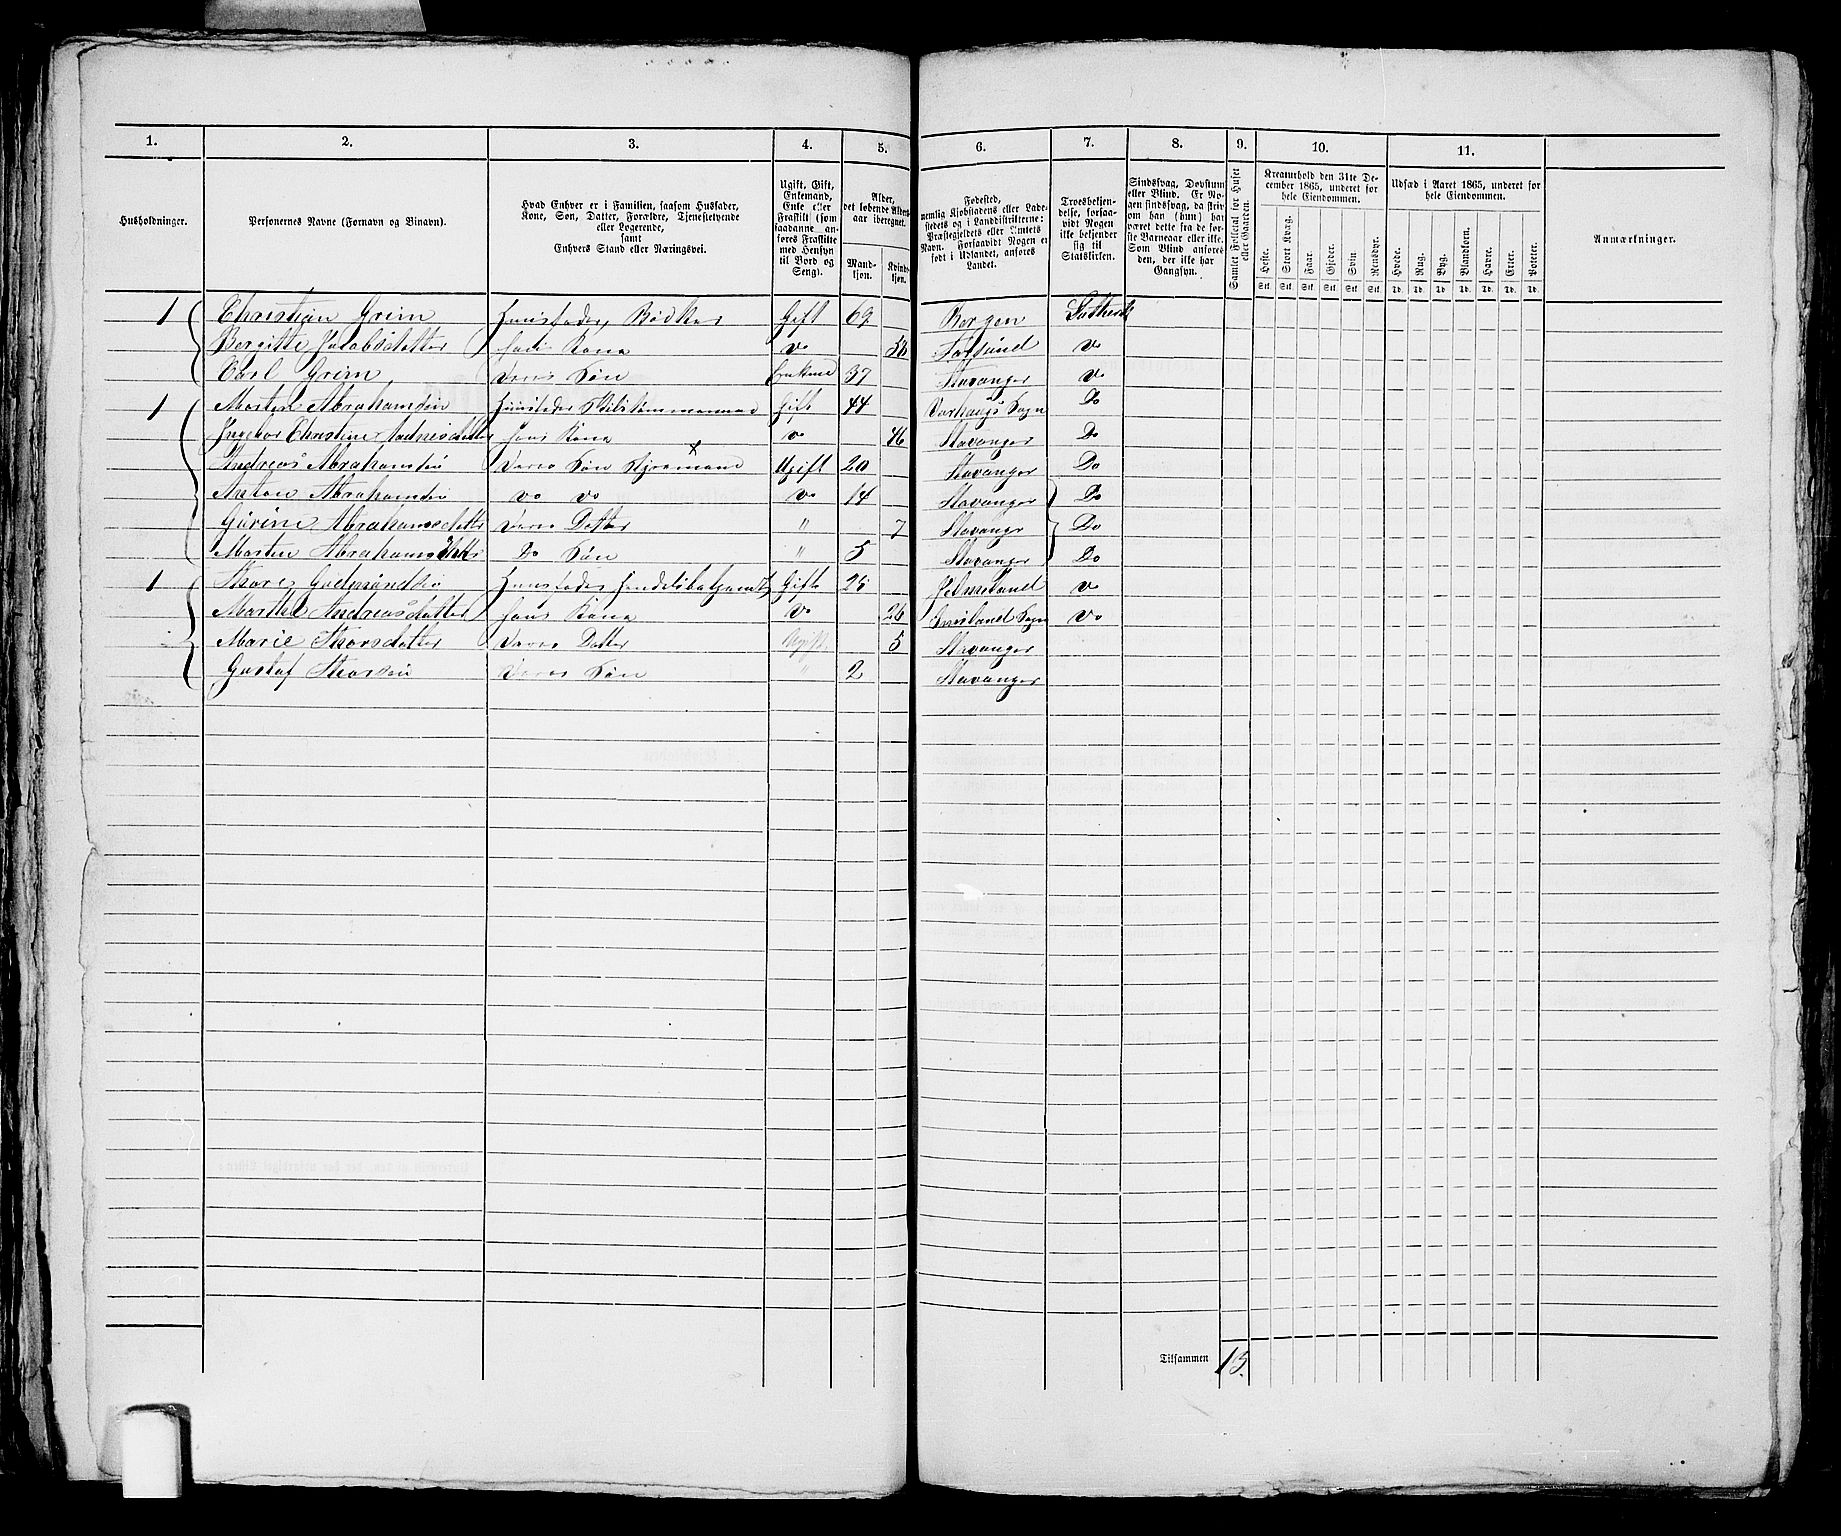 1. 2. 3. 4. 5. 6. 7. 8. 9. 10. 11.
Husholdninger.
Personernes Navne (Fornavn og Binavn).
Hvad Enhver er i Familien, saasom Husfader, Kone, Søn, Datter, Forældre, Tjenestetyende eller Logerende, samt Enhvers Stand eller Næringsvei.
Ugift, Gift, Enkemand, Enke eller Fraskilt (som saadanne anføres Fraskilte med Hensyn til Bord og Seng).
Alder, det løbende Alders-aar iberegnet.
Mand-kjøn. Kvind-kjøn.
Fødested, nemlig Kjøbstadens eller Ladestedets og i Landdistrikterne: Præstegjeldets eller Amtets Navn. Forsaavidt Nogen er født i Udlandet, anføres Landet.
Troesbekjendelse, forsaavidt Nogen ikke bekjender sig til Statskirken.
Sindssvag, Døvstum eller Blind. Er Nogen sindssvag, da skrives om han (hun) har været dette fra de første Barneaar eller ikke. Som Blind anføres den, der ikke har Gangsyn.
Samlet Folketal for Huset eller Gaarden.
Kreaturhold den 31te December 1865, underet for hele Eiendommen.
Heste. Stort Kvæg. Faar. Gjeder. Svin. Rensdyr.
Stk. Stk. Stk. Stk. Stk. Stk.
Udsæd i Aaret 1865, underet for hele Eiendommen.
Hvede. Rug. Byg. Blandkorn. Havre. Erter. Poteter.
Td. Td. Td. Td. Td. Td. Td.
Anmærkninger.
1 Christian Grim Huusfader, Bødker Gift 69 Bergen Luthersk
Bergitte Jacobsdatter Hans Kone Do 58 Farsund Do
Carl Grim Deres Søn Enkem 37 Stavanger Do
1 Morten Abrahamsen Huusfader Skibstømmermand Gift 44 Varhaugs Sogn Do
Ingebor Christine Aadnesdatter Hans Kone Do 46 Stavanger Do
Andreas Abrahamsen Deres Søn Ugift 20 Stavanger Do
Anton Abrahamsen Do Do Do 14 Stavanger Do
Abrahamsdatter Deres Datter " 7 Stavanger Do
Morten Abrahams Do Søn " 5 Stavanger Do
1 Thore Gudmundsen Huusfader Gift 25 Do
Marthe Andreasdatter Hans Kone Do 26 Sogn Do
Marie Thorsdatter Deres Datter Ugift 5 Stavanger
Gustaf Thorsen Deres Søn " 2 Stavanger
Tilsammen 13.